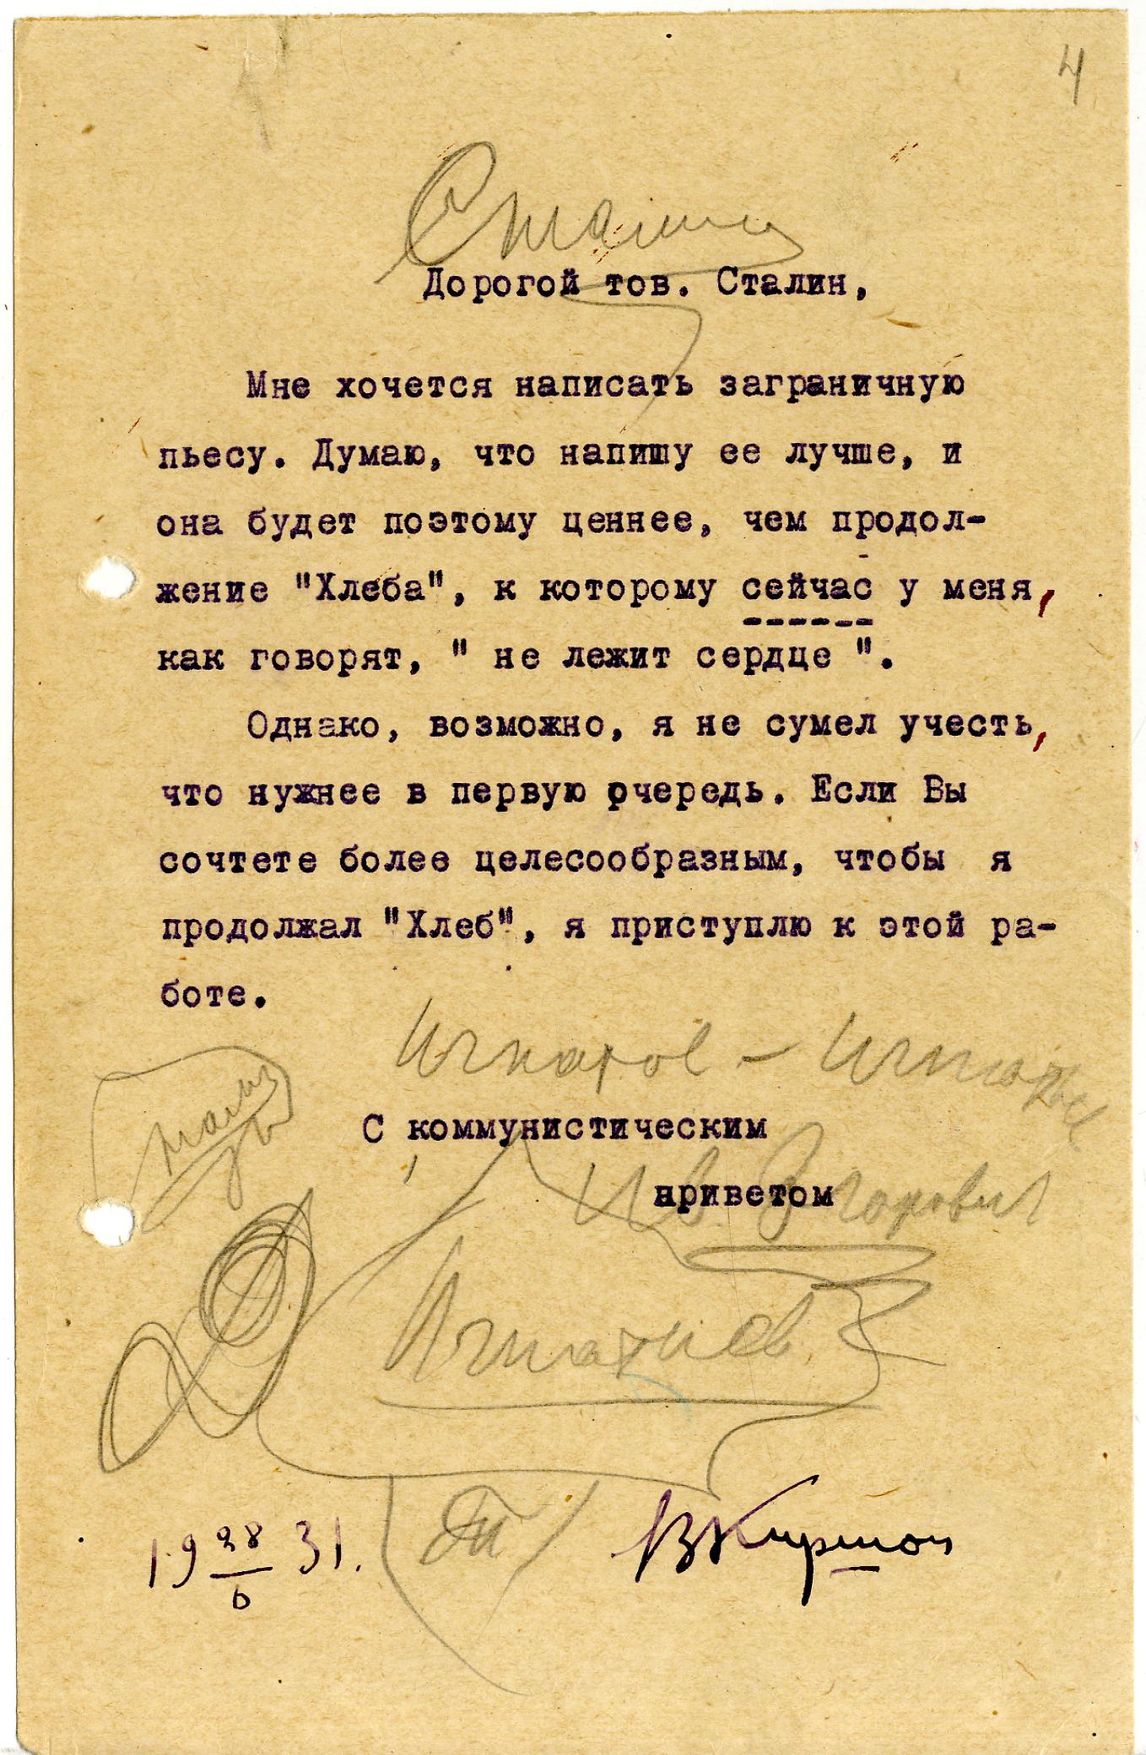 4
Сталин
Дорогой тов. Сталин,
Мне хочется написать заграничную
пьесу. Думаю, что напишу ее лучше, и
она будет поэтому ценнее, чем продол-
жение "Хлеба", к которому сейчас у меня,
как говорят, " не лежит сердце ".
Однако, возможно, я не сумел учесть,
что нужнее в первую очередь. Если Вы
сочтете более целесообразным, чтобы я
продолжал "Хлеб", я приступлю к этой ра-
боте.
Игнатов –
С коммунистическим
приветом
Игнатиев
19 28/6 31.
В Киршон